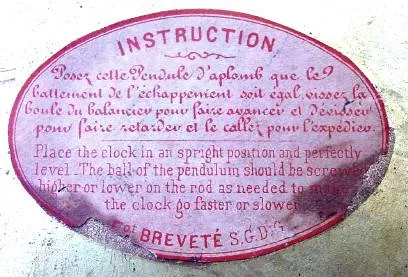 INSTRUCTION
Posez cette Pendule d'aplomb que le
battement de l'échappement soit égal, vissez la
boule du balancier pour faire avancer et dévisser
pour faire retarder et le callez pour l'expédier.
Place the clock in an spright position and perfectly
level. The ball of the pendulum should be screwe
higher or lower on the rod as needed to make
the clock go faster or slower
BREVETÉ S.G.D.G